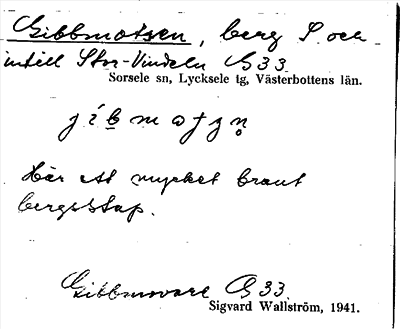 Gibbmotsen, berg S. och
intill Stor-Vindeln G33.
Sorsele sn, Lycksele tg, Västerbottens län.
Här ett mycket brant
bergsstup.
Gibbmvare G 33.
Sigvard Wallström, 1941.